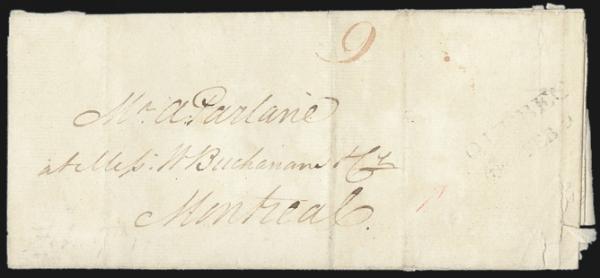 9
Mr. A. Parlane
at Mess: W. Buchanan & Cy
Montreal.
QUEBEC
FEB